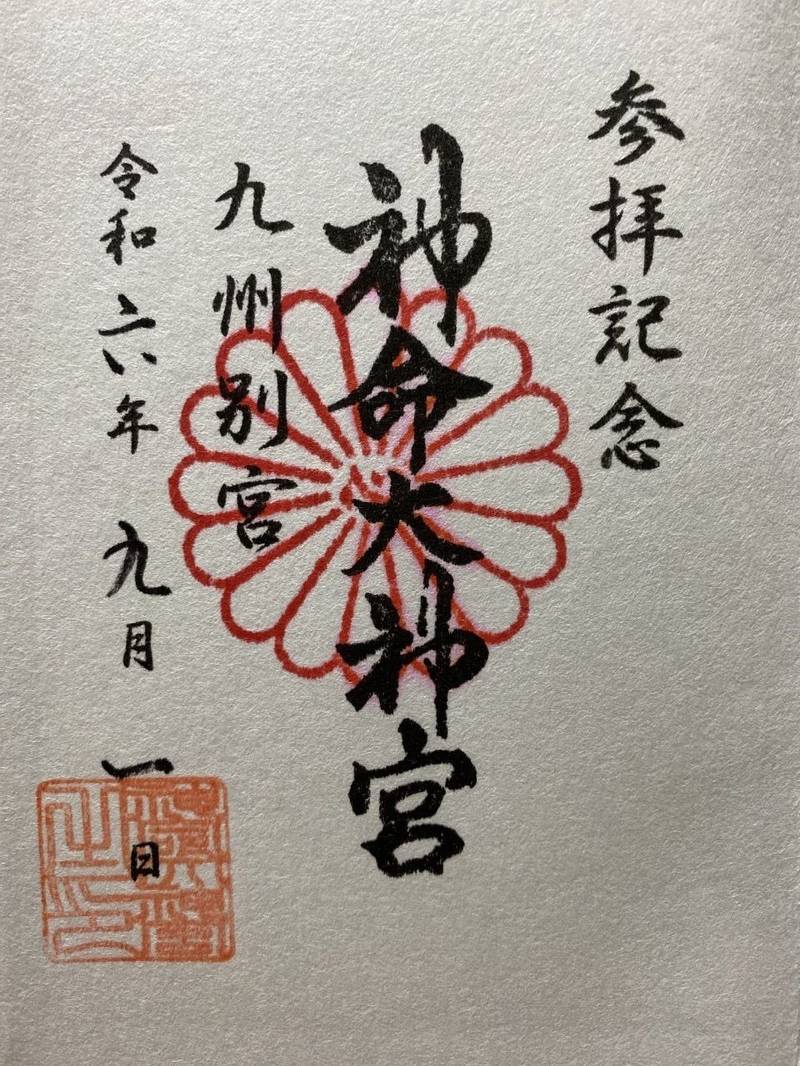 参拝記念
神命大神宮
九州別宮
令和六年 九月 一日